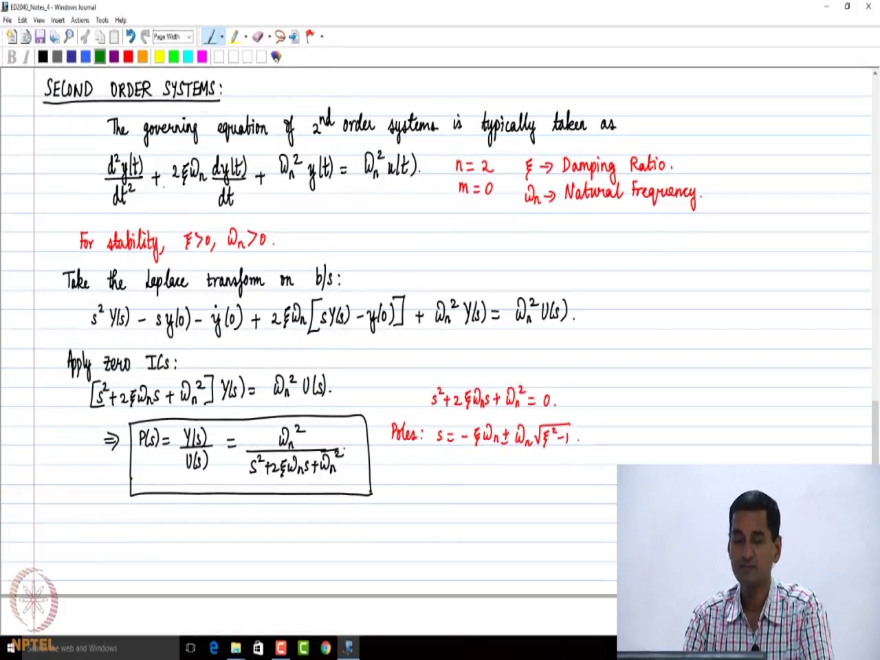 ED2040_Notes_4 - Windows Journal
File Edit View Insert Actions Tools Help
Page Width
B I
SECOND ORDER SYSTEMS:
The governing equation of 2nd order systems is typically taken as
d²y(t)/dt² + 2ξωn dy(t)/dt + ωn² y(t) = ωn² u(t).
n = 2 ξ → Damping Ratio.
m = 0 ωn → Natural Frequency.
For stability, ξ>0, ωn>0.
Take the Laplace transform on b/s:
s² Y(s) - sy(0) - ẏ(0) + 2ξωn [sY(s) - y(0)] + ωn² Y(s) = ωn² U(s).
Apply zero ICs:
[s² + 2ξωns + ωn²] Y(s) = ωn² U(s).
s² + 2ξωns + ωn² = 0.
⇒ P(s) = Y(s)/U(s) = ωn²/(s² + 2ξωns + ωn²)
Poles: s = - ξωn ± ωn √(ξ²-1).
NPTEL
the web and Windows